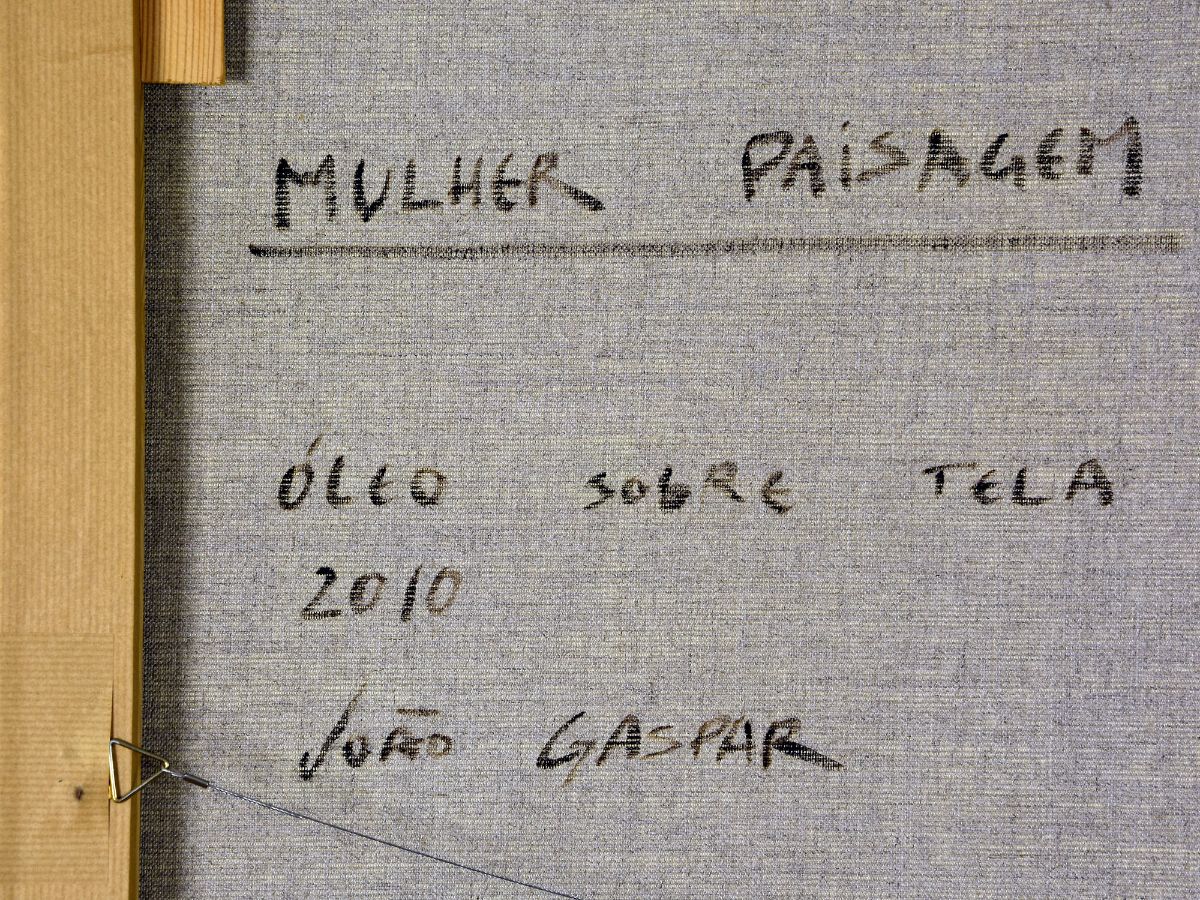 MULHER PAISAGEM
ÓLEO SOBRE TELA
2010
JOÃO GASPAR